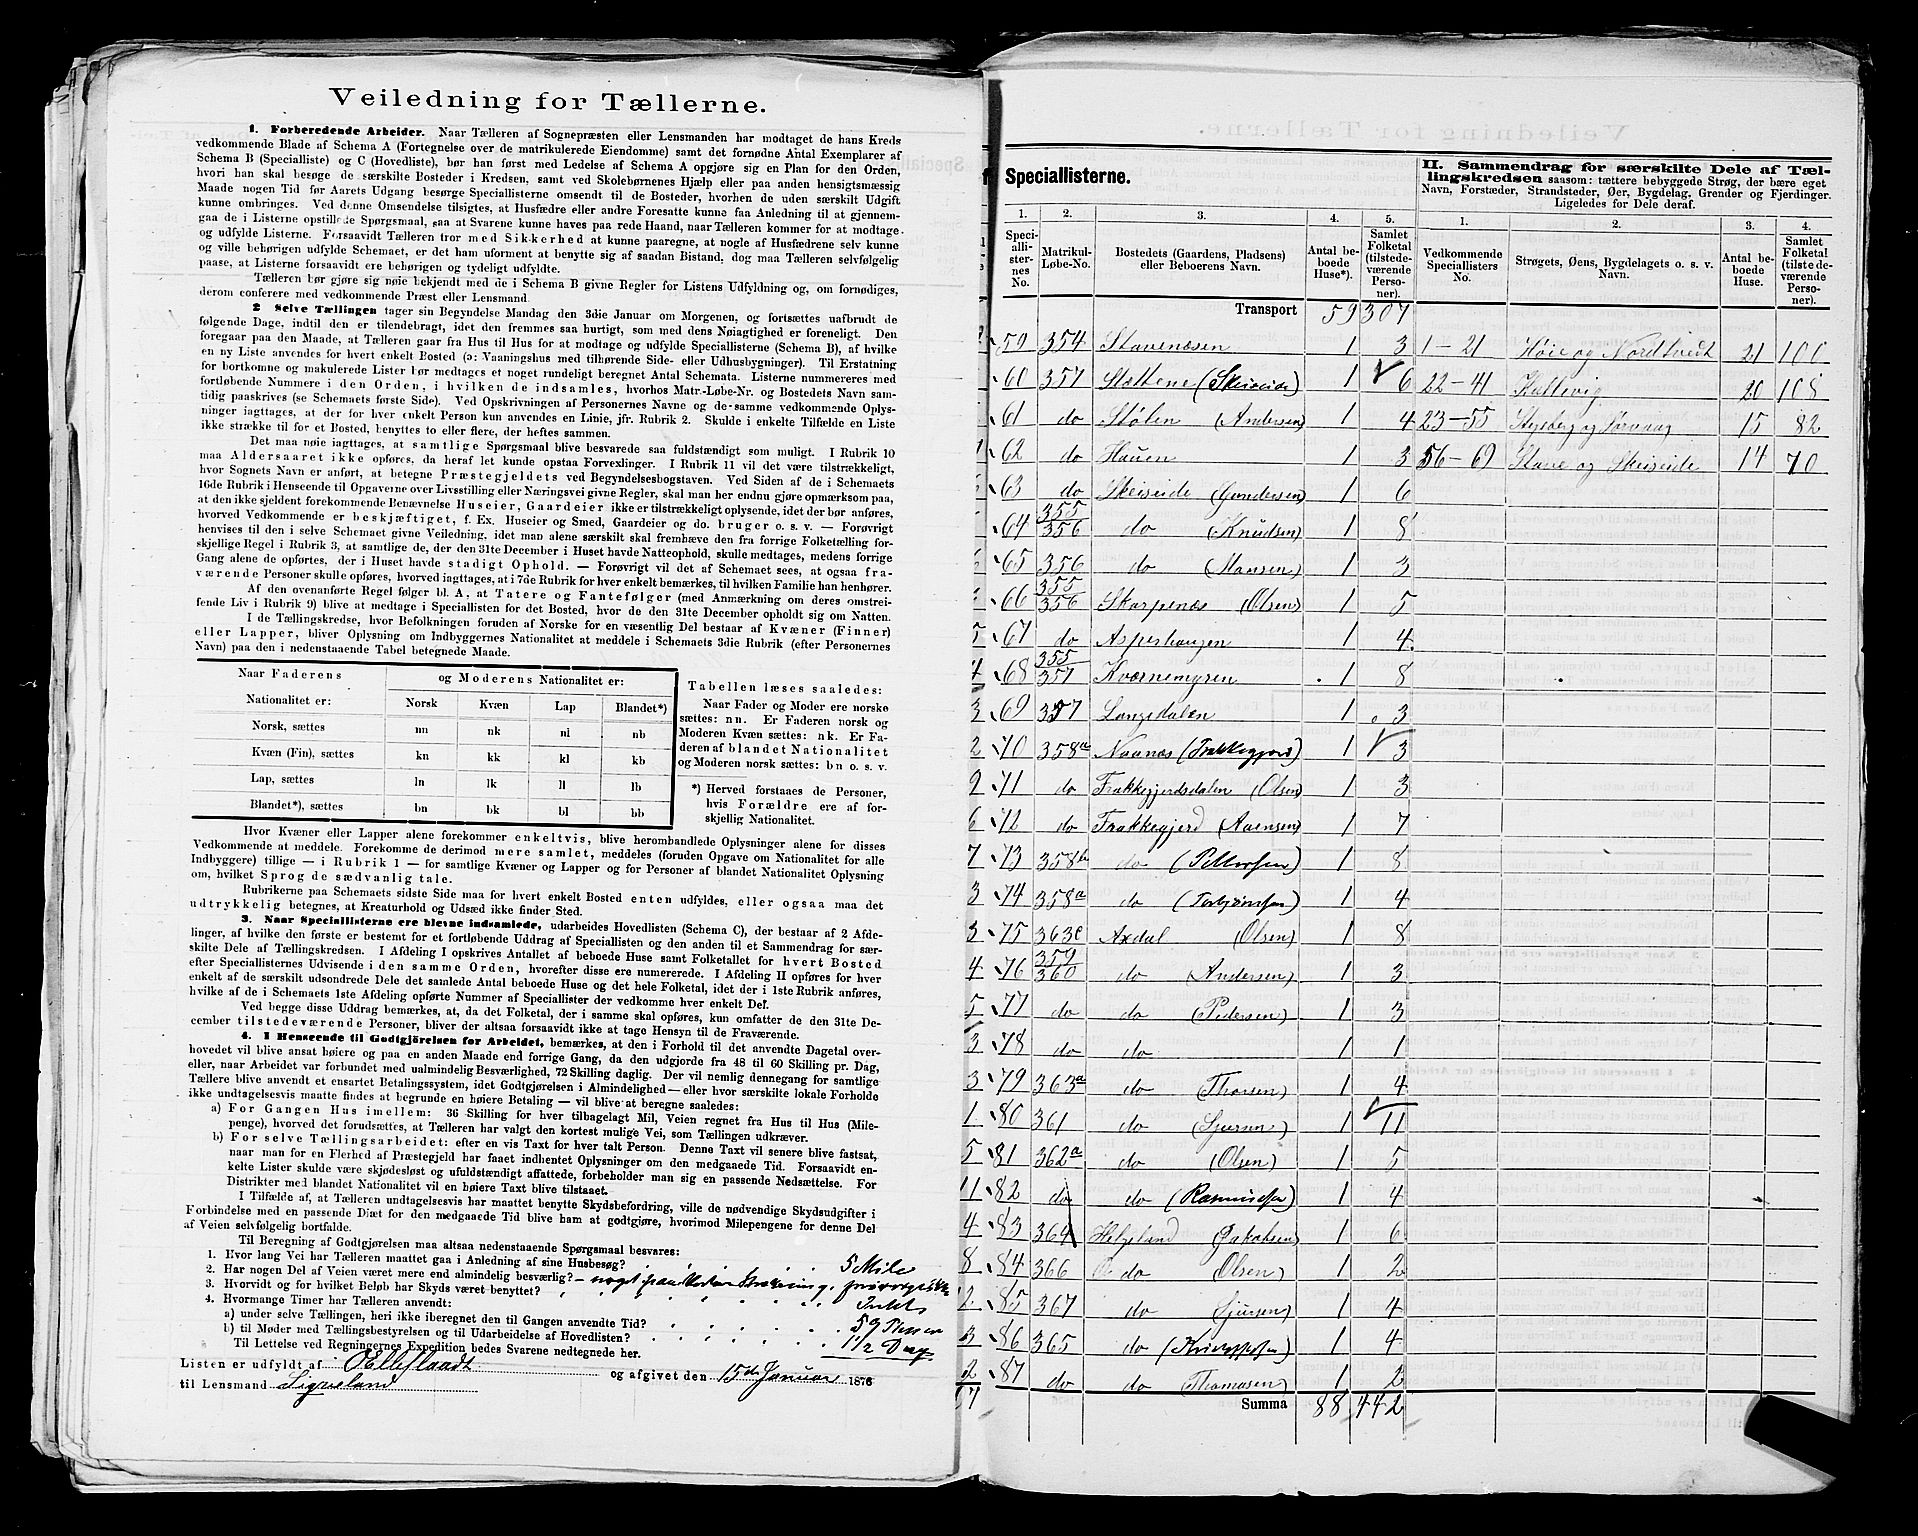 Veiledning for Tællerne.
1. Forberedende Arbeider. Naar Tælleren af Sognepræsten eller Lensmanden har modtaget de hans Kreds
vedkommende Blade af Schema A (Fortegnelse over de matrikulerede Eiendomme) samt det fornødne Antal Exemplarer af
Schema B (Specialliste) og C (Hovedliste), bør han først med Ledelse af Schema A opgjøre sig en Plan for den Orden,
hvori han skal besøge de særskilte Bosteder i Kredsen, samt ved Skolebørnenes Hjælp eller paa anden hensigtsmæssig
Maade nogen Tid før Aarets Udgang besørge Speciallisterne omsendt til de Bosteder, hvorhen de uden særskilt Udgift
kunne ombringes. Ved denne Omsendelse tilsigtes, at Husfædre eller andre Foresatte kunne faa Anledning til at gjennem-
gaa de i Listerne opstillede Spørgsmaal, saa at Svarene kunne haves paa rede Haand, naar Tælleren kommer for at modtage
og udfylde Listerne. Forsaavidt Tælleren tror med Sikkerhed at kunne paaregne, at nogle af Husfædrene selv kunne
og ville behørigen udfylde Schemaet, er det ham uforment at benytte sig af saadan Bistand, dog maa Tælleren selvfølgelig
paase, at Listerne forsaavidt ere behørigen og tydeligt udfyldte.
Tælleren bør gjøre sig nøie bekjendt med de i Schema B givne Regler for Listens Udfyldning og, om fornødiges,
derom conferere med vedkommende Præst eller Lensmand.
2 Selve Tællingen tager sin Begyndelse Mandag den 3die Januar om Morgenen, og fortsættes uafbrudt de
følgende Dage, indtil den er tilendebragt, idet den fremmes saa hurtigt, som med dens Nøiagtighed er foreneligt. Den
foregaar paa den Maade, at Tælleren gaar fra Hus til Hus for at modtage og udfylde Speciallisterne (Schema B), af hvilke
en ny Liste anvendes for hvert enkelt Bosted (ɔ: Vaaningshus med tilhørende Side- eller Udhusbygninger). Til Erstatning
for bortkomne og makulerede Lister bør medtages et noget rundeligt beregnet Antal Schemata. Listerne nummereres med
fortløbende Nummere i den Orden, i hvilken de indsamles, hvorhos Matr.-Løbe-Nr. og Bostedets Navn sam-
tidig paaskrives (se Schemaets første Side). Ved Opskrivningen af Personernes Navne og de samme vedkommende Oplys-
ninger iagttages, at der for hver enkelt Person kun anvendes en Linie, jfr. Rubrik 2. Skulde i enkelte Tilfælde en Liste
ikke strække til for et Bosted, benyttes to eller flere, der heftes sammen.
Det maa nøie iagttages, at samtlige Spørgsmaal blive besvarede saa fuldstændigt som muligt. I Rubrik 10
maa Aldersaaret ikke opføres, da heraf let kunde opstaa Forvexlinger. I Rubrik 11 vil det være tilstrækkeligt,
hvor Sognets Navn er anført, at betegne Præstegjeldets ved Begyndelsesbogstaven. Ved Siden af de i Schemaets
16de Rubrik i Henseende til Opgaverne over Livsstilling eller Næringsvei givne Regler, skal man her endnu gjøre opmærksom paa,
at den ikke sjeldent forekommende Benævnelse Huseier, Gaardeier ikke er tilstrækkelig oplysende, idet der bør anføres,
hvorved Vedkommende er beskjæftiget, f. Ex. Huseier og Smed, Gaardeier og do. bruger o. s. v. — Forøvrigt
henvises til den i selve Schemaet givne Veiledning, idet man alene særskilt skal fremhæve den fra forrige Folketælling for-
skjellige Regel i Rubrik 3, at samtlige de, der den 31te December i Huset havde Natteophold, skulle medtages, medens forrige
Gang alene de opførtes, der i Huset havde stadigt Ophold. — Forøvrigt vil det af Schemaet sees, at ogsaa fra-
værende Personer skulle opføres, hvorved iagttages, at i 7de Rubrik for hver enkelt bemærkes, til hvilken Familie han henhører.
Af den ovenanførte Regel følger bl. A., at Tatere og Fantefølger (med Anmærkning om deres omstrei-
fende Liv i Rubrik 9) blive at medtage i Speciallisten for det Bosted, hvor de den 31te December opholdt sig om Natten.
I de Tællingskredse, hvor Befolkningen foruden af Norske for en væsentlig Del bestaar af Kvæner (Finner)
eller Lapper, bliver Oplysning om Indbyggernes Nationalitet at meddele i Schemaets 3die Rubrik (efter Personernes
Navn) paa den i nedenstaaende Tabel betegnede Maade.
Naar Faderens Nationalitet er: og Moderens Nationalitet er:
Norsk Kvæn Lap Blandet*)
Norsk, sættes nn nk nl nb
Kvæn (Fin), sættes kn kk kl kb
Lap, sættes ln lk ll lb
Blandet*), sættes bn bk bl bb
Tabellen læses saaledes:
Naar Fader og Moder ere norske
sættes: nn. Er Faderen norsk og
Moderen Kvæn sættes: nk. Er Fa-
deren af blandet Nationalitet
og Moderen norsk sættes: bn o. s. v.
*) Herved forstaaes de Personer,
hvis Forældre ere af for-
skjellig Nationalitet.
Hvor Kvæner eller Lapper alene forekommer enkeltvis, blive herombandlede Oplysninger alene for disses
Vedkommende at meddele. Forekomme de derimod mere samlet, meddeles (foruden Opgave om Nationalitet for alle
Indbyggere) tillige — i Rubrik 1 — for samtlige Kvæner og Lapper og for Personer af blandet Nationalitet Oplysning
om, hvilket Sprog de sædvanlig tale.
Rubrikerne paa Schemaets sidste Side maa for hvert enkelt Bosted enten udfyldes, eller ogsaa maa det
udtrykkelig betegnes, at Kreaturhold og Udsæd ikke finder Sted.
3. Naar Speciallisterne ere blevne indsamlede, udarbeides Hovedlisten (Schema C), der bestaar af 2 Afde-
linger, af hvilke den første er bestemt for et fortløbende Uddrag af Speciallisten og den anden til et Sammendrag for sær-
skilte Dele af Tællingskredsen. I Afdeling I opskrives Antallet af beboede Huse samt Folketallet for hvert Bosted
efter Speciallisternes Udvisende i den samme Orden, hvorefter disse ere numererede. I Afdeling II opføres for hver
enkelt af de særskilt udsondrede Dele det samlede Antal beboede Huse og det hele Folketal, idet der i 1ste Rubrik anføres,
hvilke af de i Schemaets 1ste Afdeling opførte Nummer af Speciallister der vedkomme hver enkelt Del.
Ved begge disse Uddrag bemærkes, at, da det Folketal, der i samme skal opføres, kun omfatter de den 31te De-
cember tilstedeværende Personer, bliver der altsaa forsaavidt ikke at tage Hensyn til de Fraværende.
4. I Henseende til Godtgjörelsen for Arbeidet, bemærkes, at den i Forhold til det anvendte Dagetal over-
hovedet vil blive ansat høiere og paa en anden Maade end forrige Gang, da den udgjorde fra 48 til 60 Skilling pr. Dag,
eller, naar Arbeidet var forbundet med ualmindelig Besværlighed, 72 Skilling daglig. Der vil nemlig dennegang for samtlige
Tællere blive anvendt et ensartet Betalingssystem, idet Godtgjörelsen i Almindelighed — eller hvor særskilte lokale Forholde
ikke undtagelsesvis maatte findes at begrunde en høiere Betaling — vil blive at beregne saaledes:
a) For Gangen Hus imellem: 36 Skilling for hver tilbagelagt Mil, Veien regnet fra Hus til Hus (Mile-
penge), hvorved det forudsættes, at Tælleren har valgt den kortest mulige Vei, som Tællingen udkræver.
b) For selve Tællingsarbeidet: efter en vis Taxt for hver talt Person. Denne Taxt vil senere blive fastsat,
naar man for en Flerhed af Præstegjeld har faaet indhentet Oplysninger om den medgaaede Tid. Forsaavidt en-
kelte Lister skulde være skjødesløst og ufuldstændigt affattede, forbeholder man sig en passende Nedsættelse. For
Distrikter med blandet Nationalitet vil en høiere Taxt blive tilstaaet.
I Tilfælde af, at Tælleren undtagelsesvis har maattet benytte Skydsbefordring, ville de nødvendige Skydsudgifter i
Forbindelse med en passende Diæt for den medgaaede Tid blive ham at godtgjøre, hvorimod Milepengene for denne Del
af Veien selvfølgelig bortfalde.
Til Beregning af Godtgjörelsen maa altsaa nedenstaaende Spørgsmaal besvares:
1. Hvor lang Vei har Tælleren maattet gaa i Anledning af sine Husbesøg? 5 Mile
2. Har nogen Del af Veien været mere end almindelig besværlig?
3. Hvorvidt og for hvilket Beløb har Skyds været benyttet?
4. Hvormange Timer har Tælleren anvendt: Intet
a) under selve Tællingen, heri ikke iberegnet den til Gangen anvendte Tid? 59 Timer
b) til Møder med Tællingsbestyrelsen og til Udarbeidelse af Hovedlisten? 1½ Dag
Til Lettelse ved Regningernes Expedition bedes Svarene nedtegnede her.
Listen er udfyldt af og afgivet den 15de Januar 1876
til Lensmand Sigveland
Speciallisterne.
II. Sammendrag for særskilte Dele af Tæl-
lingskredsen saasom: tættere bebyggede Strøg, der bære eget
Navn, Forstæder, Strandsteder, Øer, Bygdelag, Grender og Fjerdinger.
Ligeledes for Dele deraf.
1. 2. 3. 4. 5. 1. 2. 3. 4.
Speci-allister-nes No. Matrikul-Løbe-No. Bostedets (Gaardens, Pladsens) eller Beboerens Navn. Antal be-boede Huse*). Samlet Folketal (tilstede-værende Perso-ner). Vedkommende Speciallisters No. Strøgets, Øens, Bygdelagets o. s. v. Navn. Antal be-boede Huse. Samlet Folketal (tilstede-værende Perso-ner).
Transport 59 307
59 354 Stavenæsen 1 3 1–21 Høie og Nordtvedt 21 100
60 357 Stættene (Skeiseide) 1 6 22–41 Kattevig 20 108
61 do Stølen (Andersen) 1 4 23–55 Stysberg og Sørvaag 15 82
62 do Hauen 1 3 56–69 Stave og Skeiseide 14 70
63 do Skeiseide (Gundersen) 1 6
64 355/356 do (Knudsen) 1 8
65 356 do (Hansen) 1 3
66 355/356 Skarpenæs (Olsen) 1 5
67 do Aspeshaugen 1 4
68 355/357 Kværnemyren 1 8
69 357 Langedalen 1 3
70 358a Naanæs (Frakkegjerd) 1 3
71 do Frakkegjerdsdalen (Olsen) 1 3
72 do Frakkegjerd (Svensen) 1 7
73 358b do (Pettersen) 1 8
74 358a do (Torbjørnsen) 1 4
75 363c Axdal (Olsen) 1 8
76 359/360 do (Andersen) 1 3
77 do do (Pedersen) 1 3
78 do do 1 1
79 363a do (Thorsen) 1 4
80 361 do (Sjursen) 1 11
81 362a do (Olsen) 1 5
82 do do (Rasmussen) 1 4
83 364 Helgeland (Jakobsen) 1 6
84 366 do (Olsen) 1 2
85 367 do (Sjursen) 1 4
86 365 do 1 4
87 do do (Thomasen) 1 2
Summa 88 442